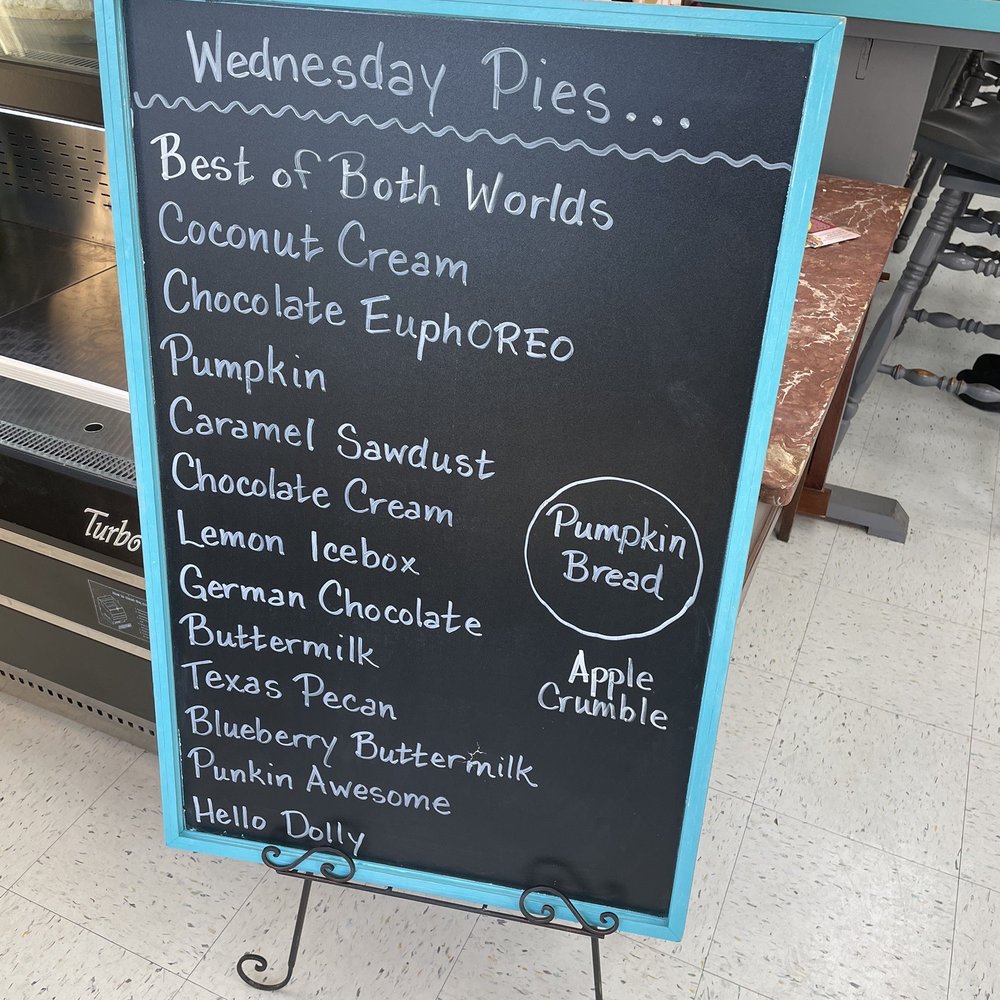 Wednesday Pies...
Best of Both Worlds
Coconut Cream
Chocolate EuphOREO
Pumpkin
Caramel Sawdust
Chocolate Cream
Lemon Icebox
German Chocolate
Buttermilk
Texas Pecan
Blueberry Buttermilk
Punkin Awesome
Hello Dolly
Pumpkin
Bread
Apple
Crumble
Turbo